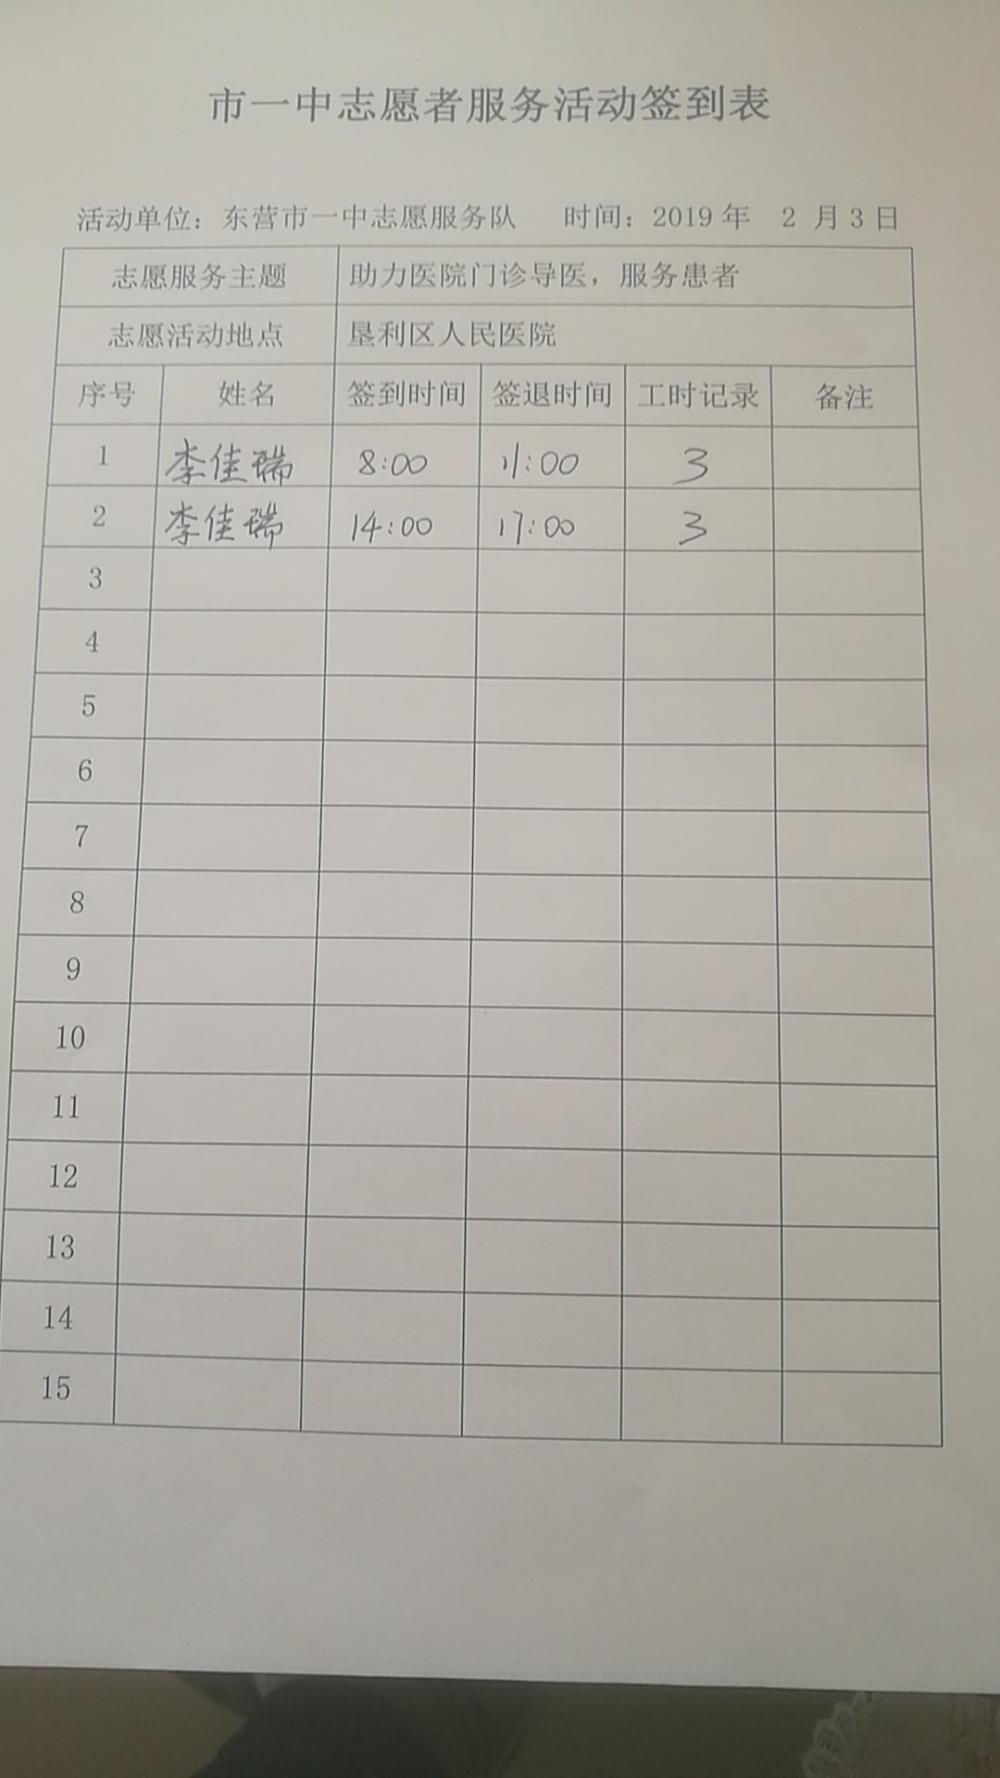 市一中志愿者服务活动签到表
活动单位：东营市一中志愿服务队 时间：2019 年 2 月 3 日
志愿服务主题 助力医院门诊导医，服务患者
志愿活动地点 垦利区人民医院
序号 姓名 签到时间 签退时间 工时记录 备注
1 李佳瑞 8:00 11:00 3
2 李佳瑞 14:00 17:00 3
3
4
5
6
7
8
9
10
11
12
13
14
15